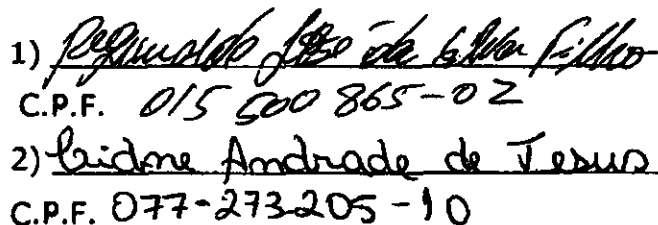 1) Reginaldo José da Silva Filho
C.P.F. 015 500 865-02
2) Cidne Andrade de Jesus
C.P.F. 077-273.205-10